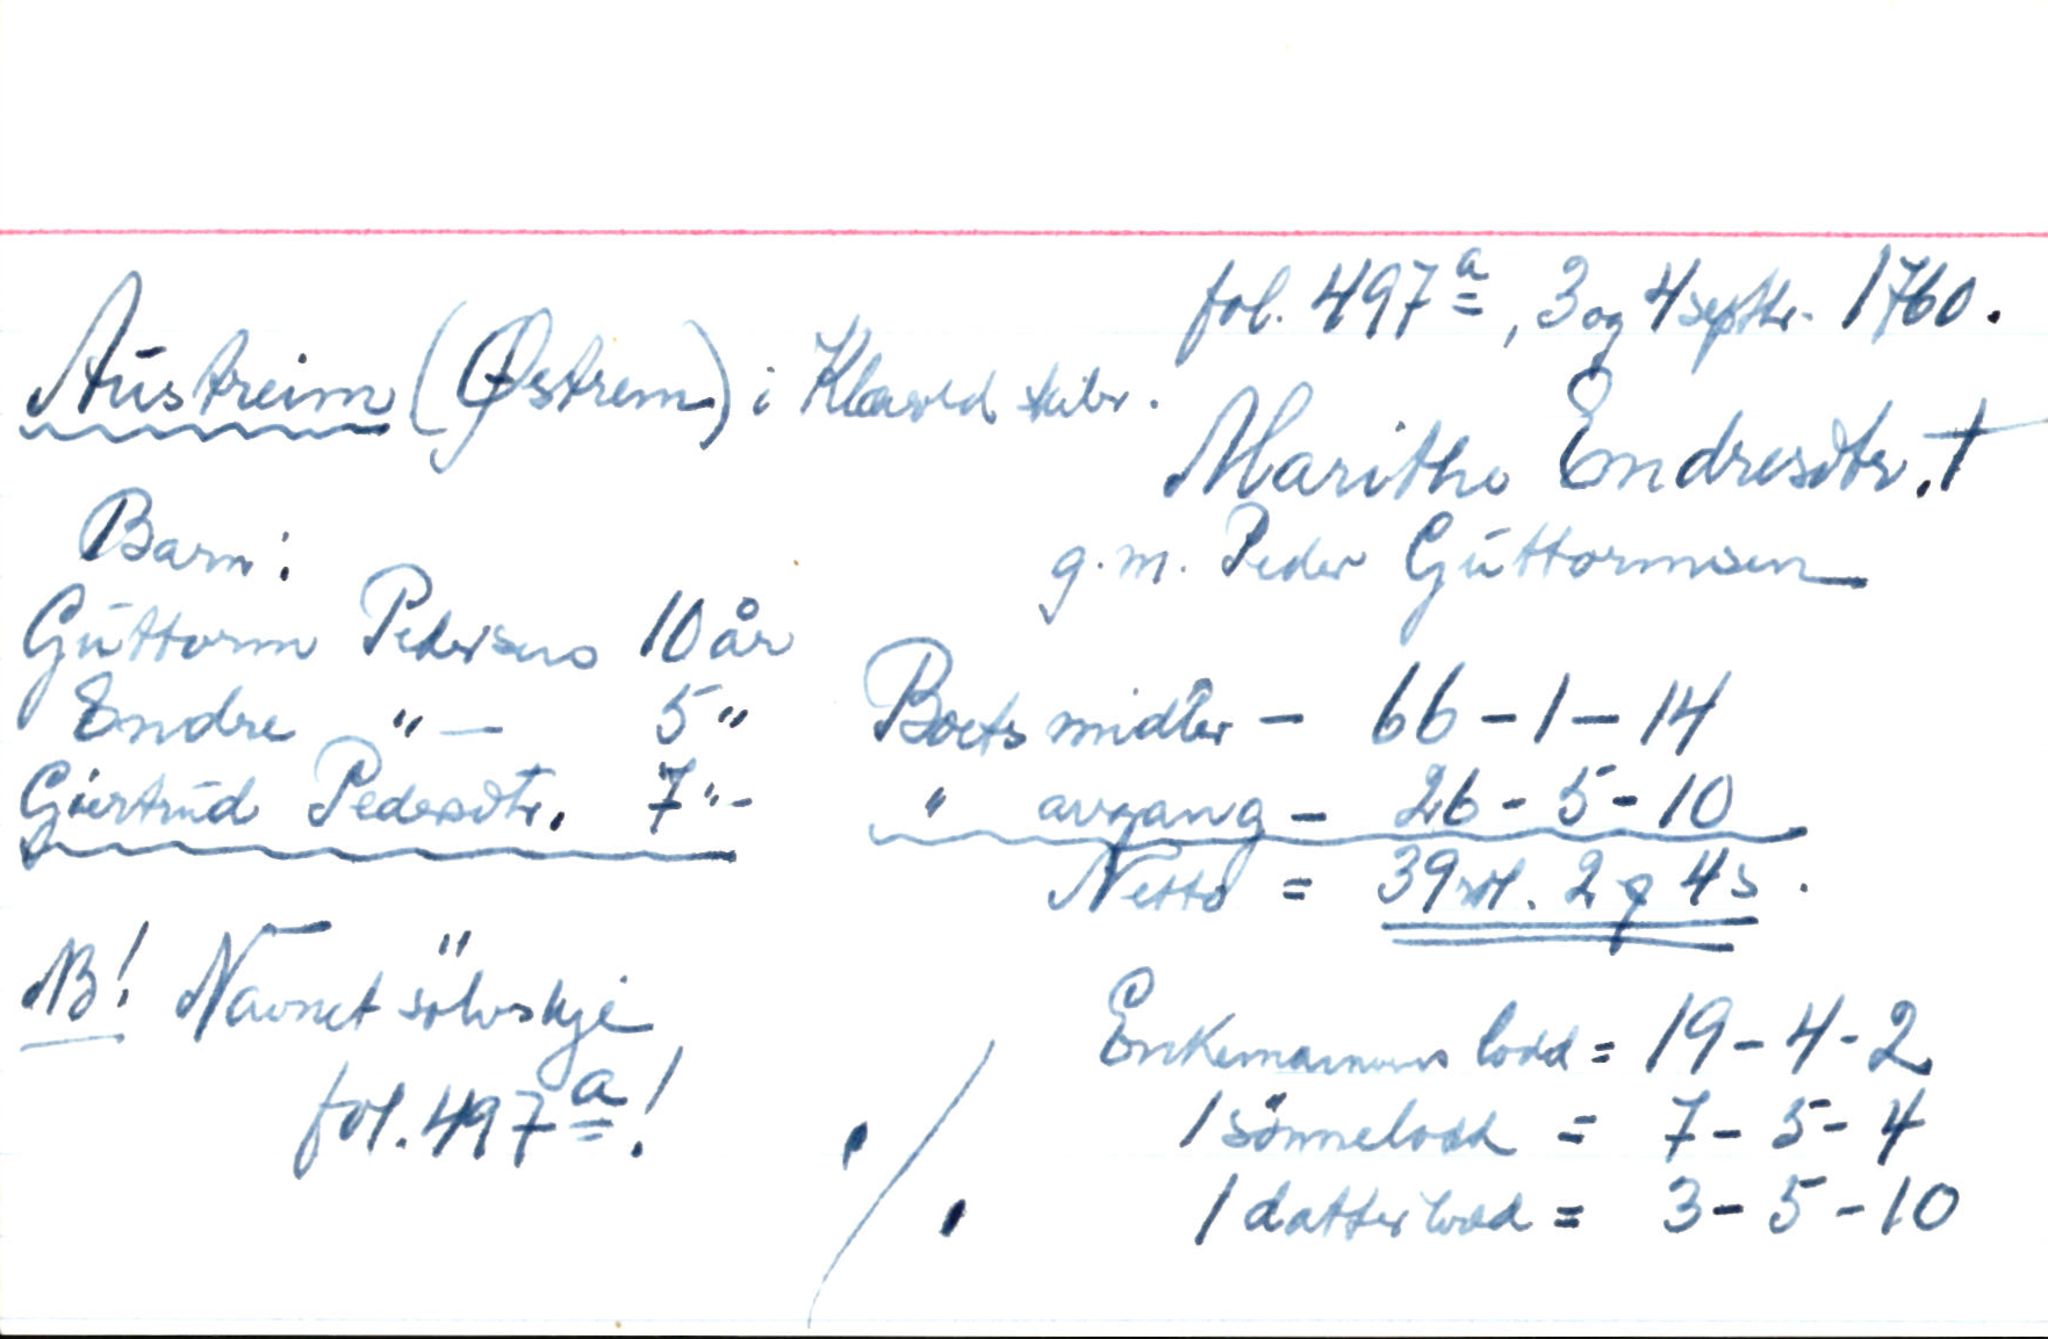 fol. 497a, 3 og 4 septbr. 1760.
Austreim (Østrem) i Klavold skibr.
Marithe Endresdtr. †
g.m. Peder Guttormsen
Barn:
Guttorm Pedersens 10 år
Endre " — 5 "
Giertrud Pedersdtr. 7 " -
Boets midler - 66 - 1 - 14
" avgang - 26 - 5 - 10
Netto = 39 rdl. 2 q 4 s.
NB! Navnet sölvskje
fol. 497a!
Enkemannens lodd = 19 - 4 - 2
1 sönnelodd = 7 - 5 - 4
1 datterlodd = 3 - 5 - 10